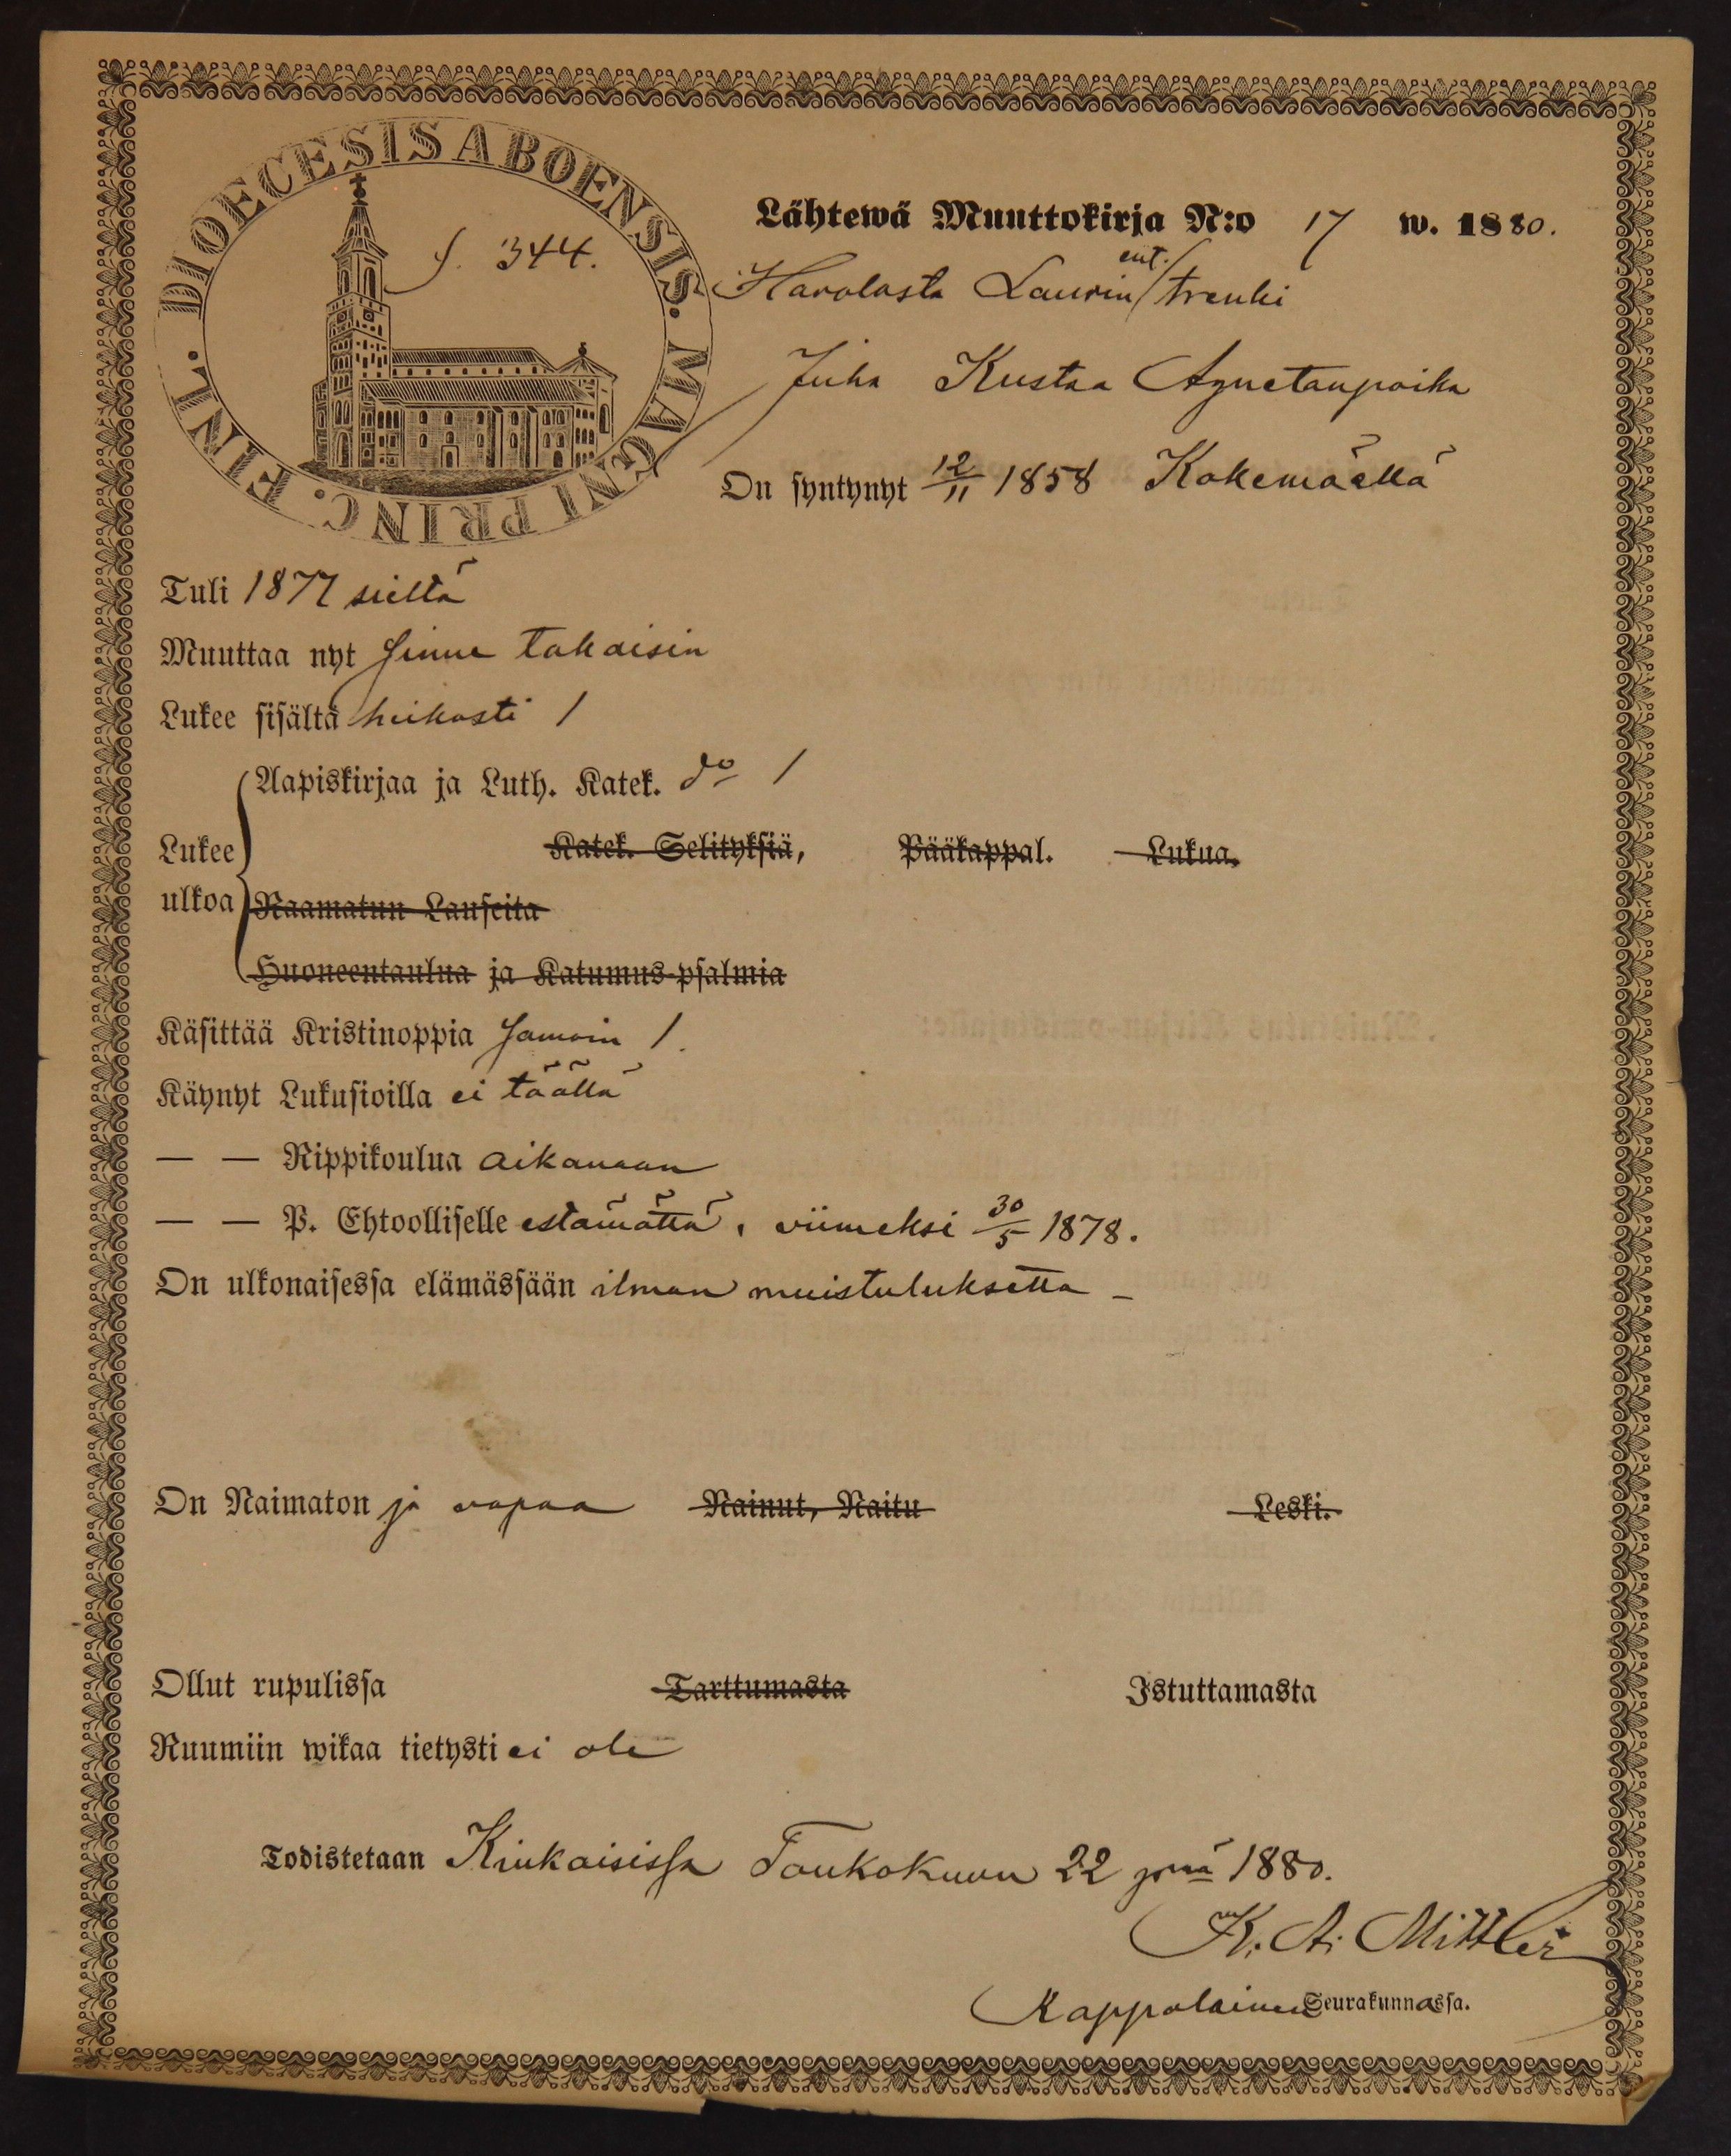 DIOECESIS ABOENSIS. MAGNI PRINC. FINL.
S. 344.
Lähtewä Muuttokirja N:o 17 w. 1880.
ent.
Harolasta Laurin trenki
Juha Kustaa Agnetanpoika
On syntynyt 12/11 1858 Kokemäellä
Tuli 1877 sieltä
Muuttaa nyt sinne takaisin
Lukee sisältä heikosti 1
Aapiskirjaa ja Luth. Katek. do 1
Lukee ulkoa
Katek. Selityksiä, Pääkappal. Lukua.
Raamatun Lauseita
Huoneentaulua ja Katumus-psalmia
Käsittää Kristinoppia samoin 1.
Käynyt Lukusioilla ei täällä
— — Rippikoulua aikanaan
— — P. Ehtoolliselle estämättä, viimeksi 30/5 1878.
On ulkonaisessa elämässään ilman muistutuksetta
On Naimaton ja vapaa Nainut, Naitu Leski.
Ollut rupulissa Tarttumasta Istuttamasta
Ruumiin wikaa tietysti ei ole
Todistetaan Kiukaisissa Toukokuun 22 pnä 1880.
K. A. Mittler
Kappalainen Seurakunnassa.